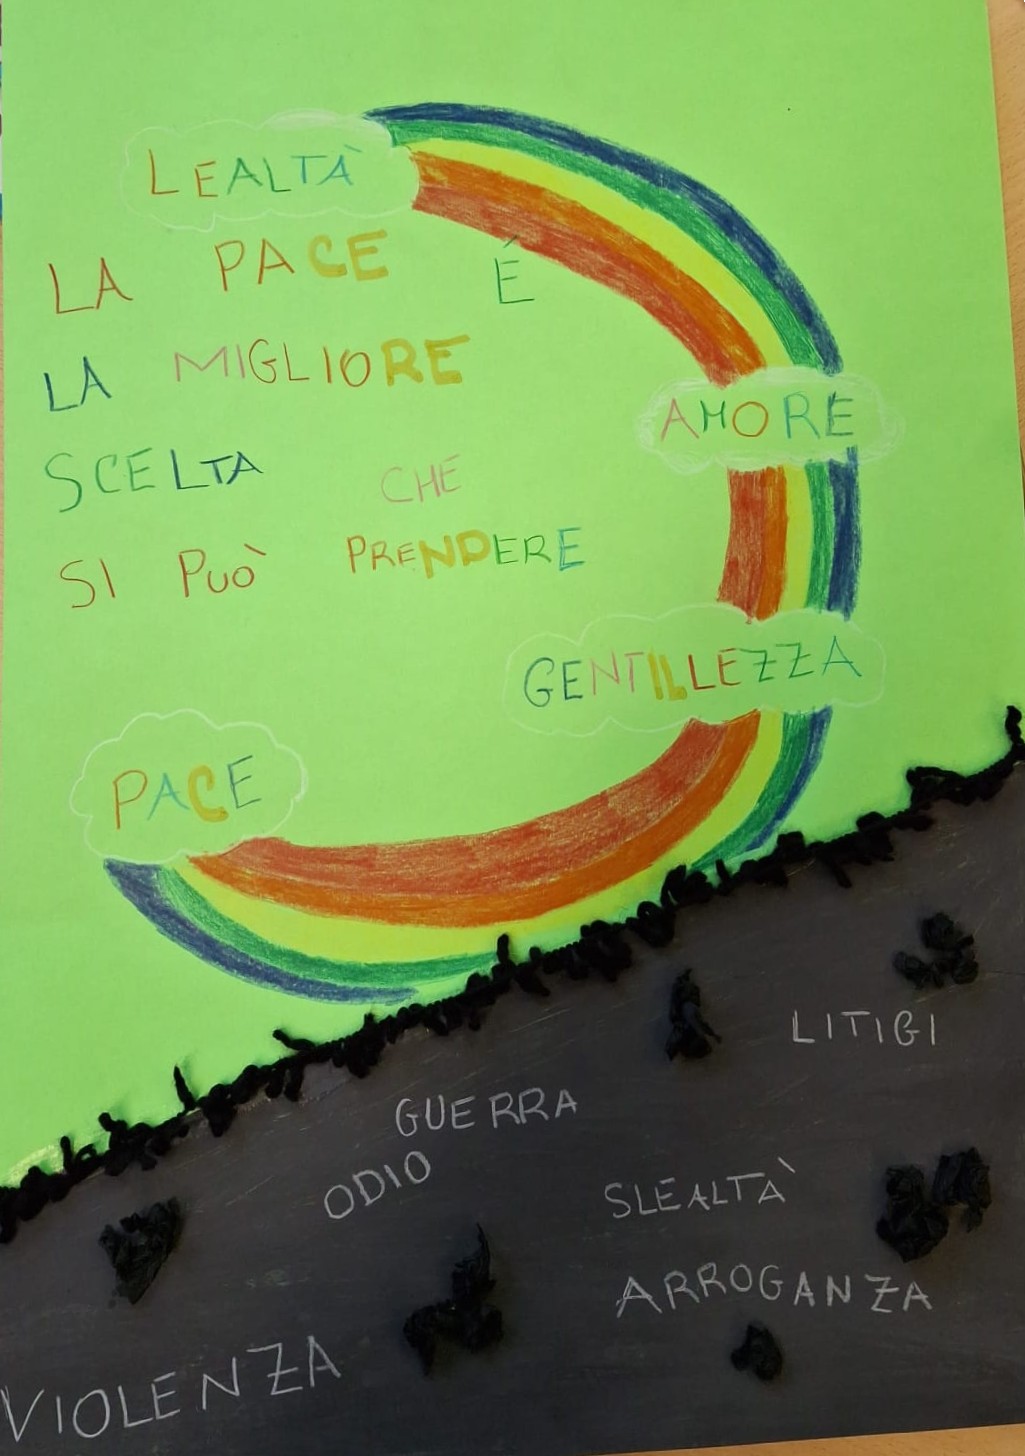 LEALTÀ
LA PACE É
LA MIGLIORE
SCELTA CHE
SI PUÒ PRENDERE
AMORE
GENTILLEZZA
PACE
LITIGI
GUERRA
ODIO
SLEALTÀ
ARROGANZA
VIOLENZA